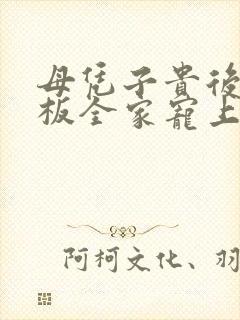 母凭子貴後
板全家寵上
阿柯文化、羽